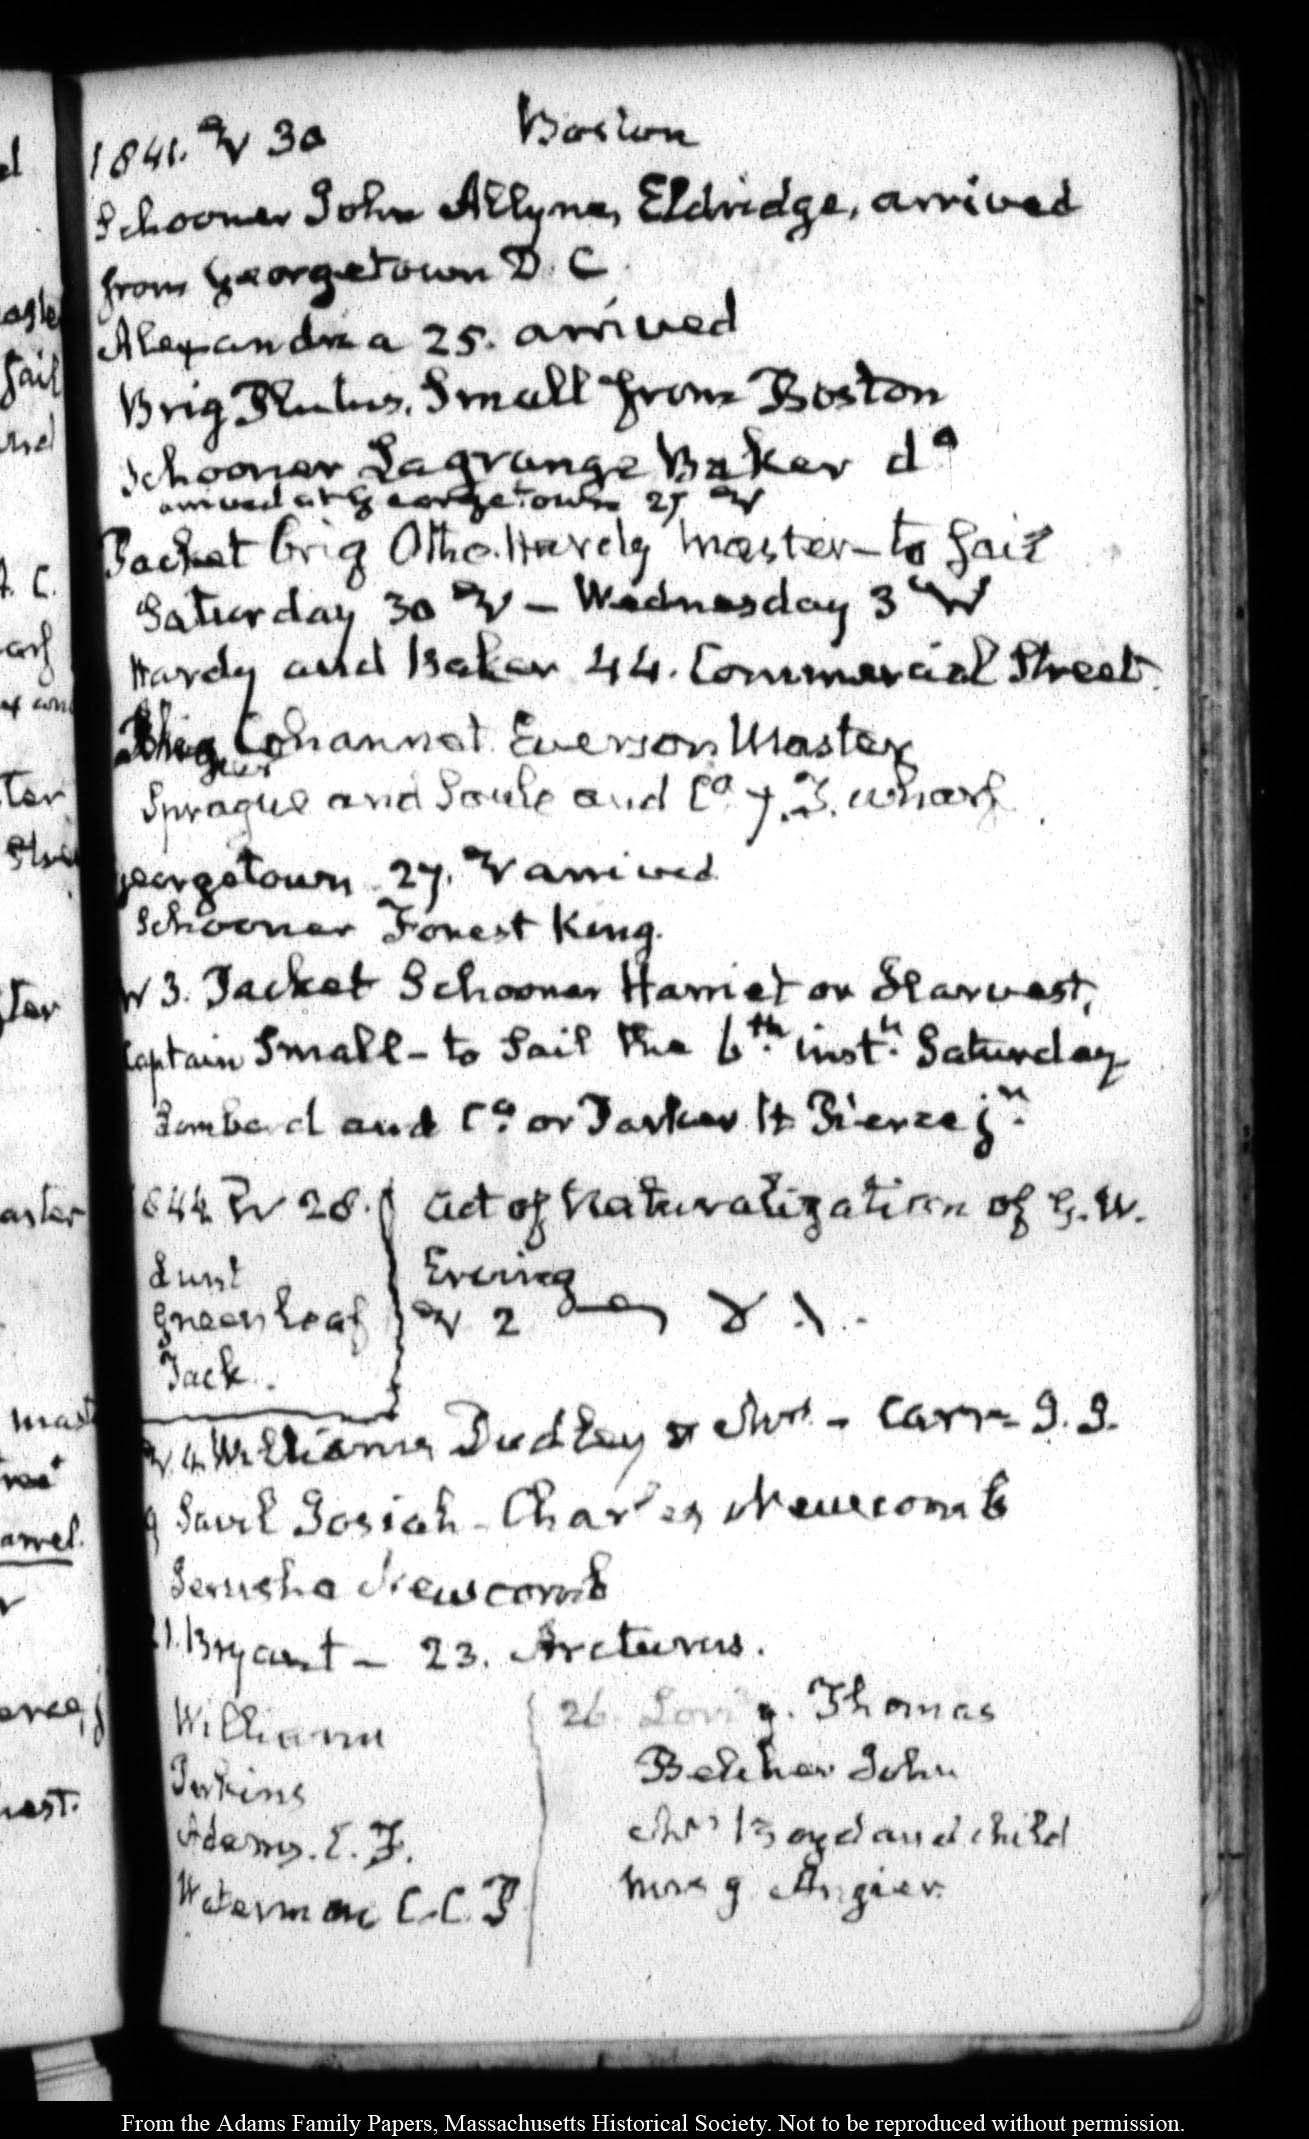 1841. 30
Boston
Schooner John Allyne, Eldridge, arrived
from Georgetown D. C
Alexandria 25. arrived
Brig Plutus, Small from Boston
Schooner Lagrange Baker dº
arrived at Georgetown 25
Packet brig Otho. Hardy Master – to sail
Saturday 30 – Wednesday 3
Hardy and Baker 44. Commercial Street
Brig Cohannet. Everson Master
Sprague and Soule and Cº. T. wharf
Georgetown 27. arrived
Schooner Forest King.
3. Packet Schooner Harriet or Harvest,
Captain Small – to sail the 6th. inst. Saturday
Lombard and Cº. or Parker H Pierce jr.
1844 28.
Lunt
Greenleaf
Jack.
Act of Naturalization of G. W.
Erving
2
4. Williams Dudley Mrs. – Carr
Savil Josiah – Charles Newcomb
Jerusha Newcomb
21. Bryant – 23. Arcturus.
William
Perkins
Adams. E. F.
Waterman C. C. P
26. Thomas
Belcher John
Mrs Boyd and child
Angier.
From the Adams Family Papers, Massachusetts Historical Society. Not to be reproduced without permission.